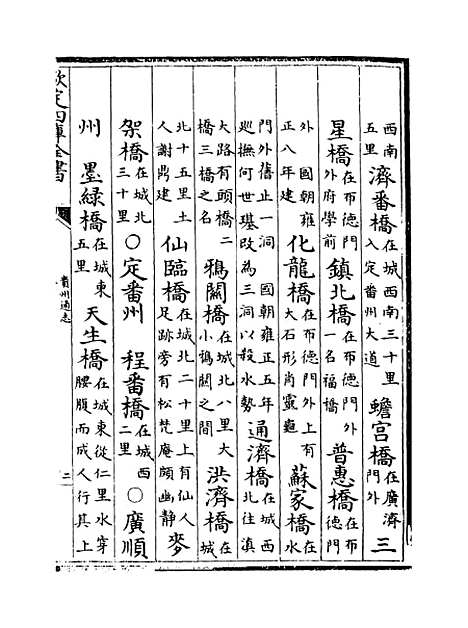 西南五里濟番橋在城西南三十里入定番州大道蟾宮橋在廣濟門外三
星橋在布德門外府學前鎮北橋在布德門外一名福橋普惠橋在布德門
外 國朝雍正八年建化龍橋在布德門外上有大石形肖靈龜蘇家橋在水
門外舊止一洞 國朝雍正五年巡撫何世璂改為三洞以殺水勢通濟橋在城西北往滇
大路有頭橋二橋三橋之名鴉關橋在城北八里大小鴉關之間洪濟橋在城
北十五里土人謝鼎建仙臨橋在城北二十里上有仙人足跡旁有松梵庵頗幽靜麥
架橋在城北三十里○定番州 程番橋在城西二里○廣順
州 墨緑橋在城東五里天生橋在城東從仁里水穿腰腹而成人行其上
欽定四庫全書
貴州通志
二